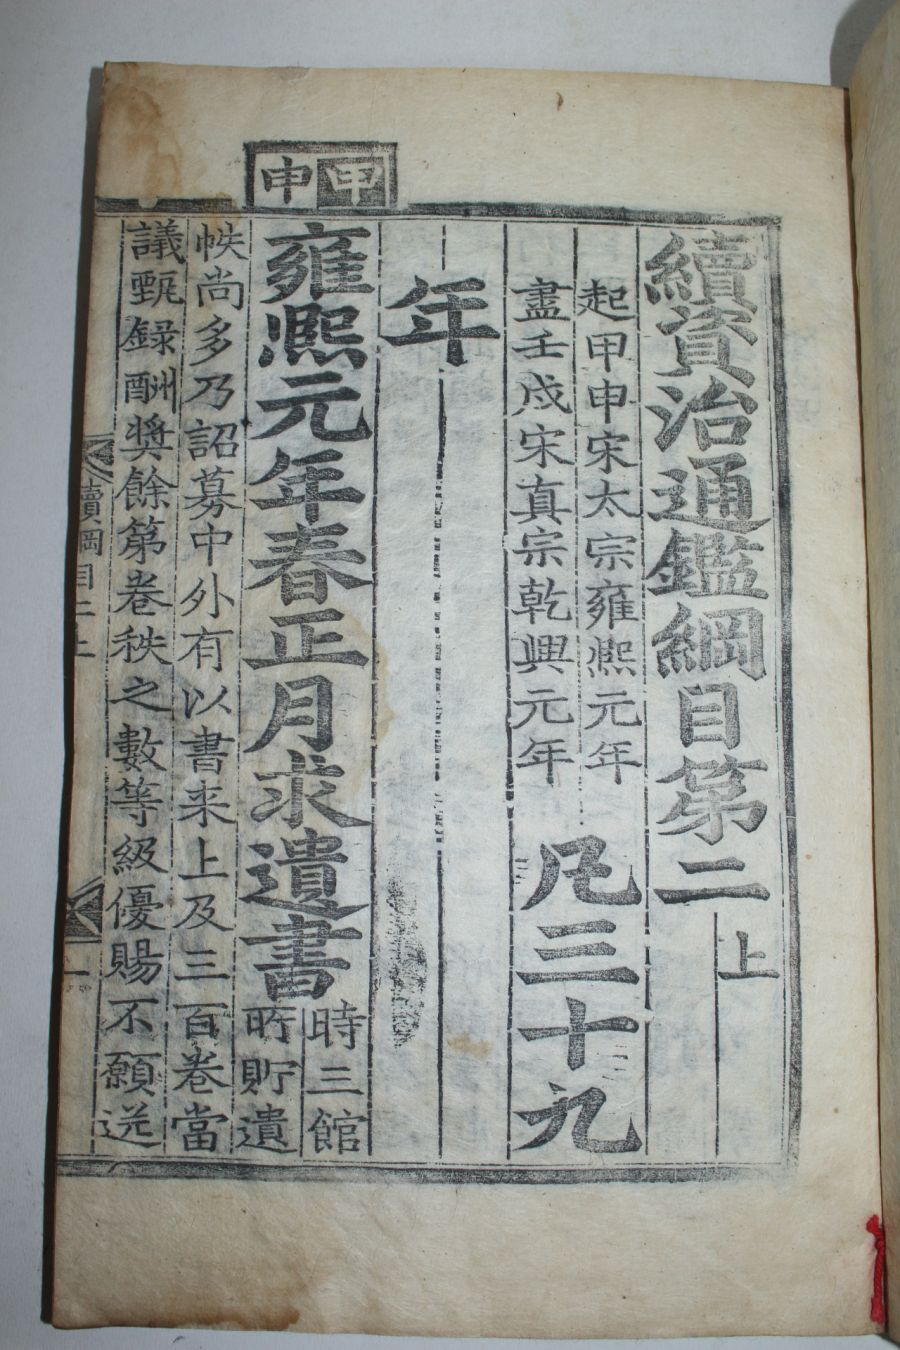 甲申
續資治通鑑綱目第二上
起甲申宋太宗雍熙元年
盡壬戌宋真宗乾興元年
凡三十九
年
雍熙元年春正月求遺書
時三館
所貯遺
帙尚多乃詔募中外有以書来上及三百卷當
議甄録酬奬餘第卷秩之數等級優賜不願送
續綱目二上
一